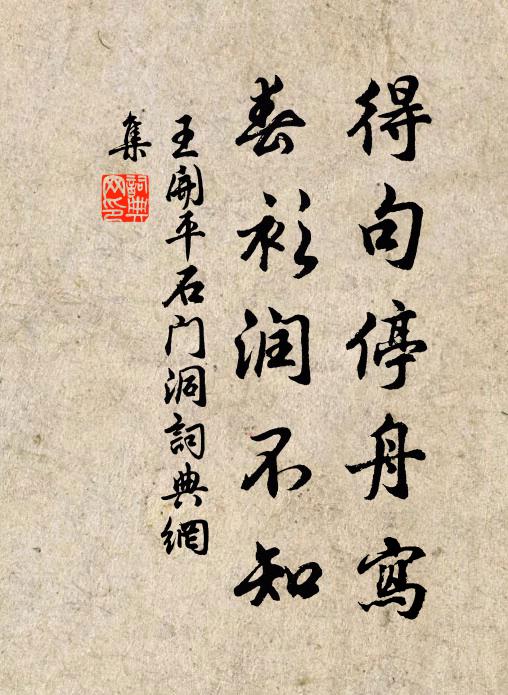 得句停舟寫
春衫润不知
王開平石门洞詞典網
集
詞典
网印